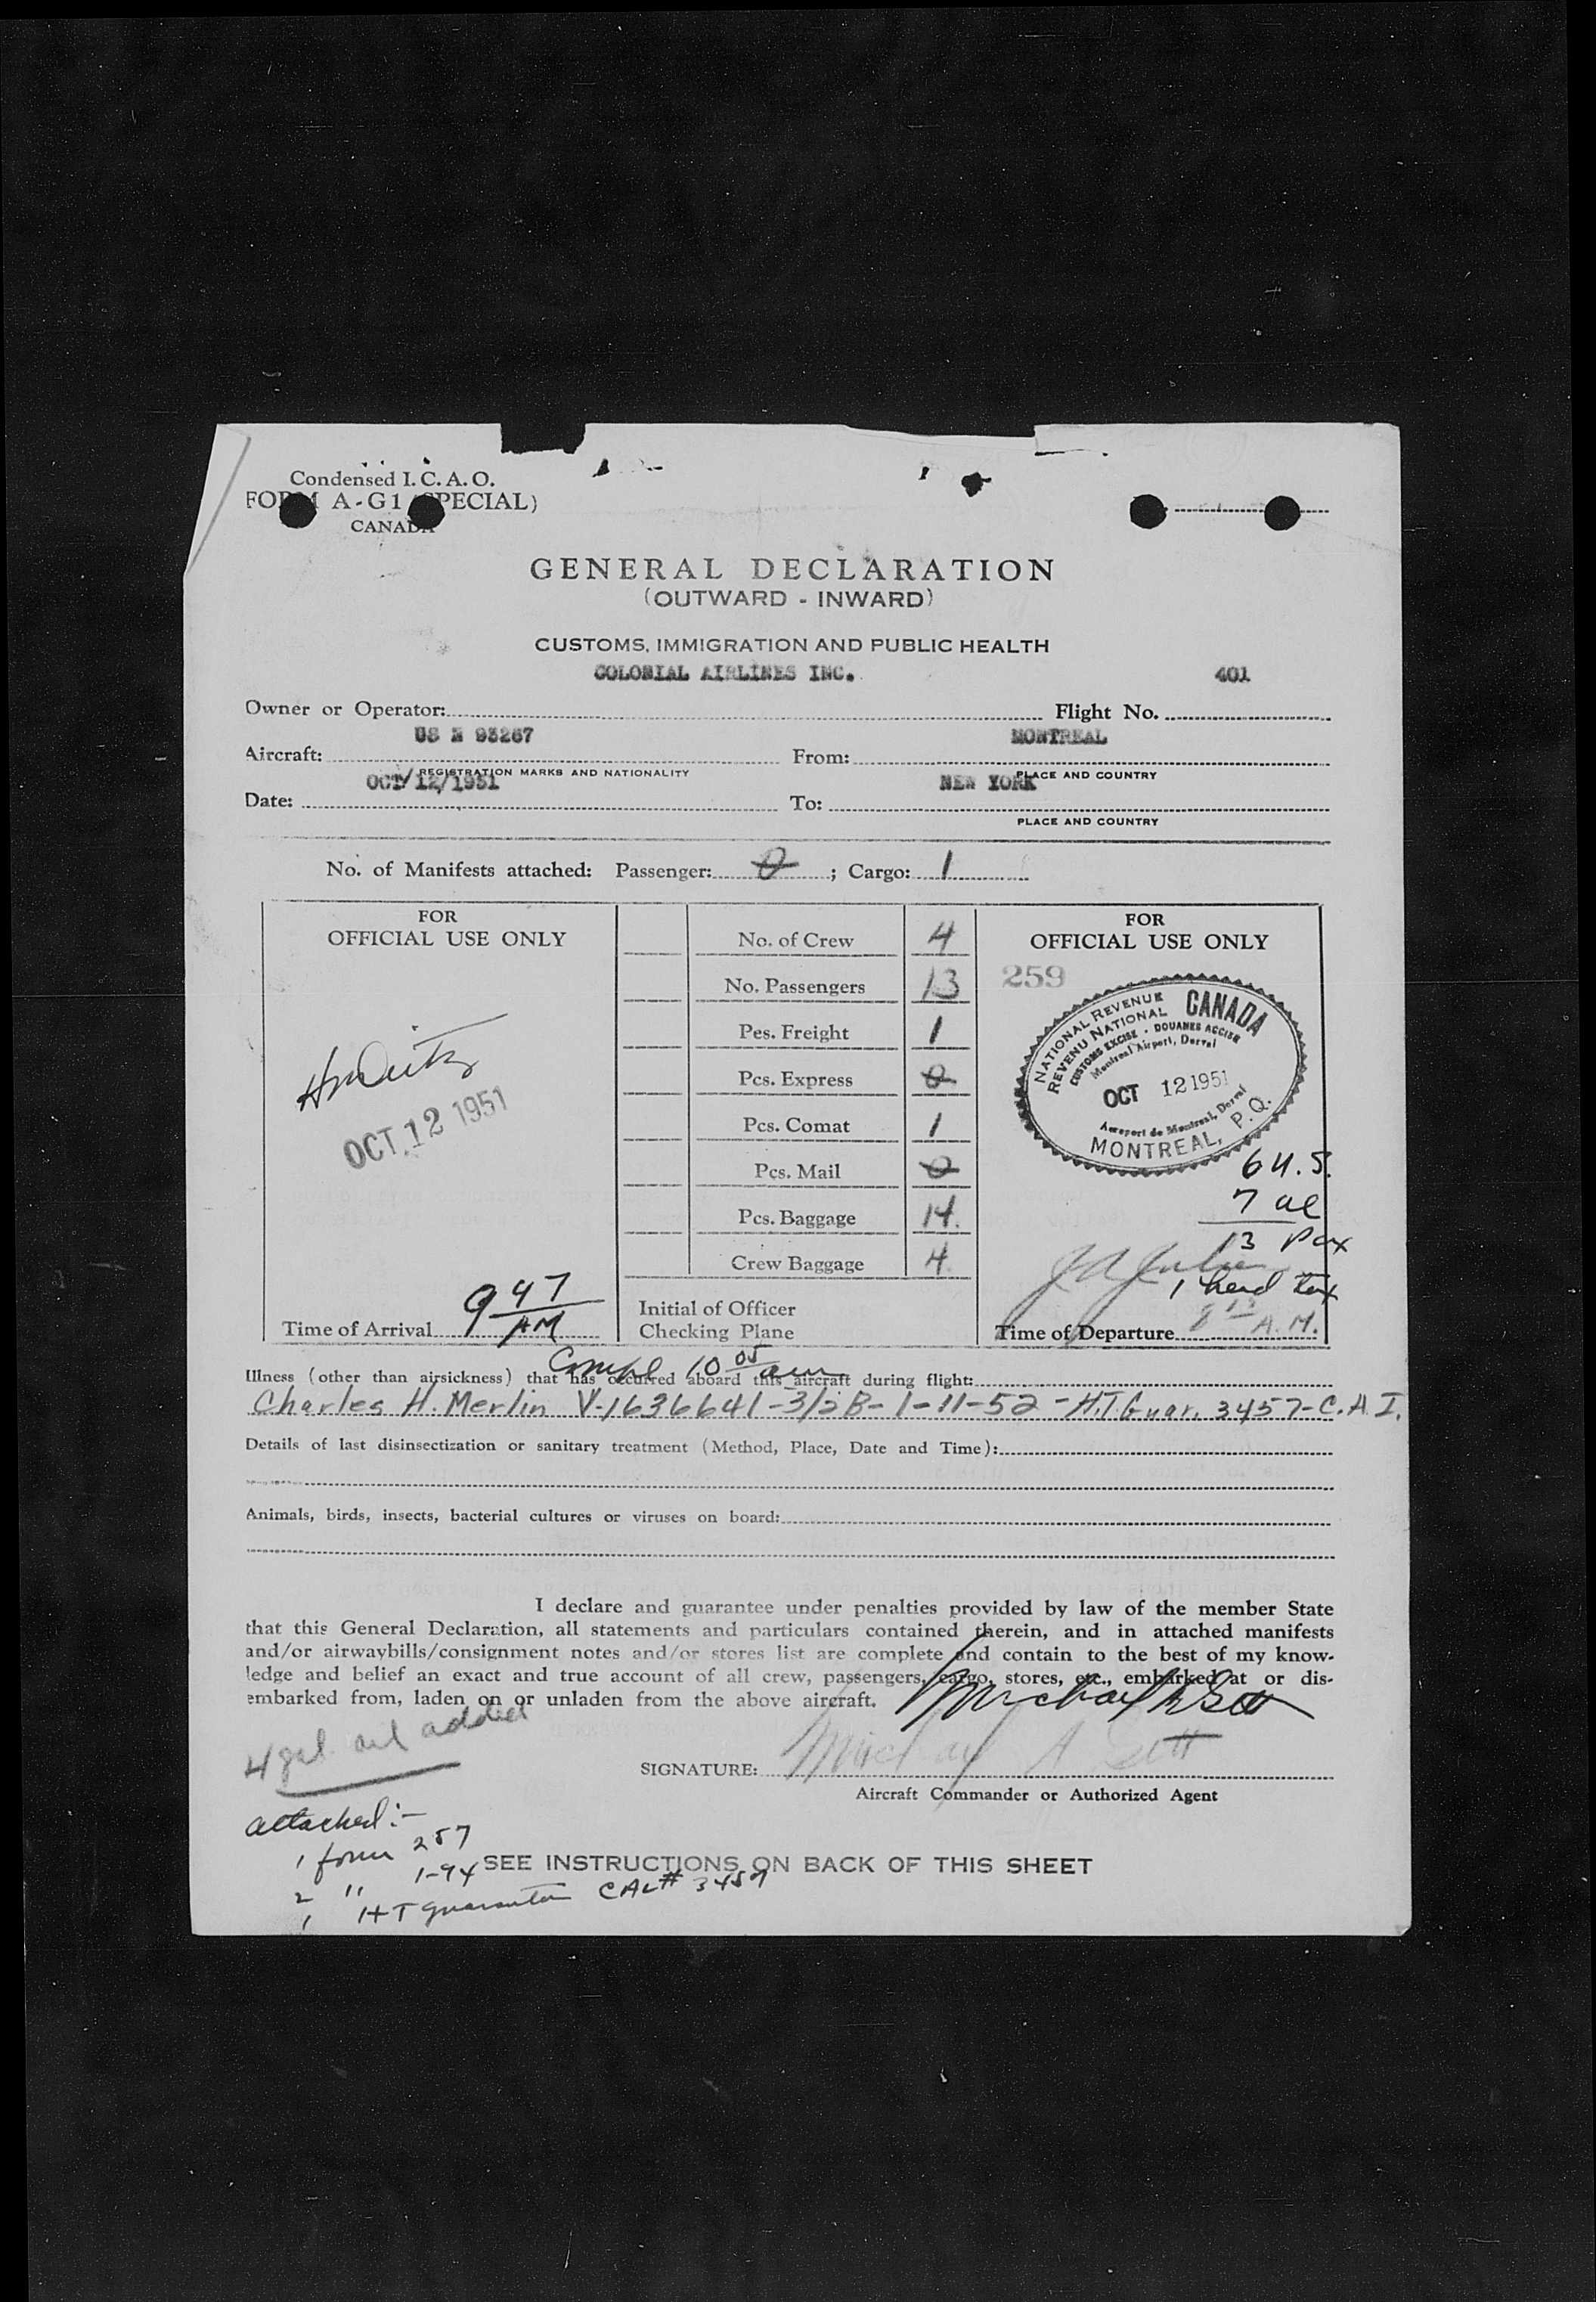 Condensed I. C. A. O.
FORM A-G1 (SPECIAL)
CANADA
GENERAL DECLARATION
(OUTWARD - INWARD)
CUSTOMS, IMMIGRATION AND PUBLIC HEALTH
COLONIAL AIRLINES INC. 401
Owner or Operator: Flight No.
US N 93267 MONTREAL
Aircraft: From:
REGISTRATION MARKS AND NATIONALITY PLACE AND COUNTRY
OCT/12/1951 NEW YORK
Date: To:
PLACE AND COUNTRY
No. of Manifests attached: Passenger: 0 ; Cargo: 1
FOR
OFFICIAL USE ONLY
OCT 12 1951
Time of Arrival 9 47 AM
No. of Crew 4
No. Passengers 13
Pes. Freight 1
Pcs. Express 0
Pcs. Comat 1
Pcs. Mail 0
Pcs. Baggage 14
Crew Baggage 4
Initial of Officer
Checking Plane
FOR
OFFICIAL USE ONLY
259
NATIONAL REVENUE CANADA
REVENU NATIONAL
CUSTOMS EXCISE · DOUANES ACCISE
Montreal Airport, Dorval
OCT 12 1951
Aeroport de Montreal, Dorval
MONTREAL, P.Q.
6 U.S.
7 al
13 Pax
1 head tax
Time of Departure A.M.
Compl 10 05 am
Illness (other than airsickness) that has occurred aboard this aircraft during flight:
Charles H. Merlin V-1636641-3/2B-1-11-52-H.T.Guar. 3457-C.A.I.
Details of last disinsectization or sanitary treatment (Method, Place, Date and Time):
Animals, birds, insects, bacterial cultures or viruses on board:
I declare and guarantee under penalties provided by law of the member State
that this General Declaration, all statements and particulars contained therein, and in attached manifests
and/or airwaybills/consignment notes and/or stores list are complete and contain to the best of my know-
ledge and belief an exact and true account of all crew, passengers, cargo, stores, etc., embarked at or dis-
embarked from, laden on or unladen from the above aircraft.
4 gal oil added
SIGNATURE:
Aircraft Commander or Authorized Agent
attached:-
1 form 257
2 " 1-94
SEE INSTRUCTIONS ON BACK OF THIS SHEET
1 HT guarantee CAL# 3457